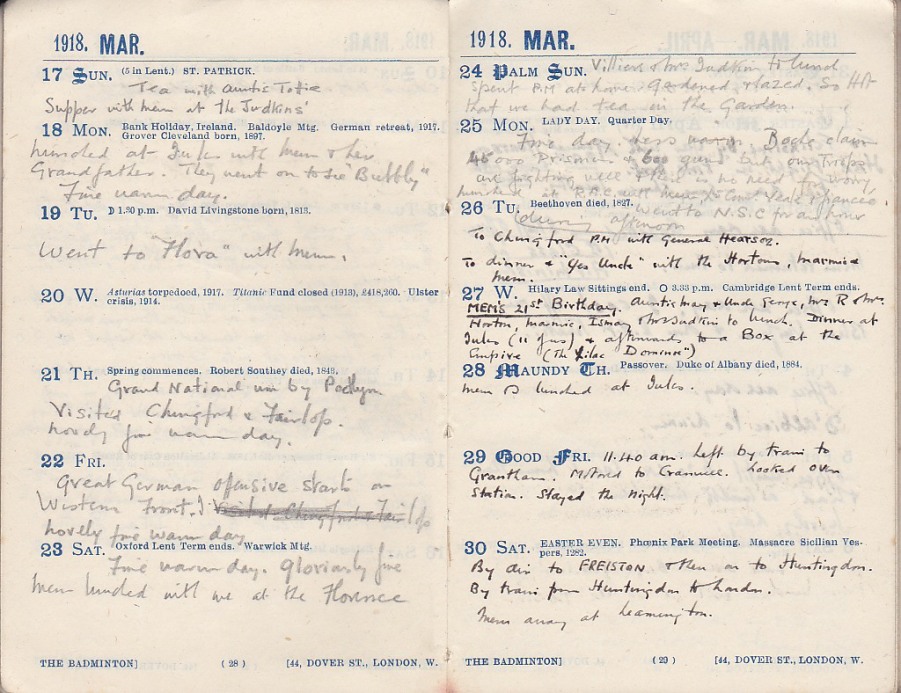 1918. MAR.
17 SUN. (5 in Lent.) ST. PATRICK.
Tea with Auntie Totie
Supper with Mem at the Judkins'
18 MON. Bank Holiday, Ireland. Baldoyle Mtg. German retreat, 1917.
Grover Cleveland born, 1897.
lunched at Jules with Mem & her
Grandfather. They went on to see "Bubbly"
Fine warm day.
19 TU. D 1.30 p.m. David Livingstone born, 1813.
Went to "Flora" with Mem.
20 W. Asturias torpedoed, 1917. Titanic Fund closed (1913), £418,260. Ulster
crisis, 1914.
21 TH. Spring commences. Robert Southey died, 1843.
Grand National won by Poethlyn
Visited Chingford & Fairlop.
Lovely fine warm day.
22 FRI.
Great German offensive starts on
Western Front. Visited Chingford & Fairlop
Lovely fine warm day
23 SAT. Oxford Lent Term ends. Warwick Mtg.
Fine warm day. Gloriously fine
Mem lunched with me at the Florence
THE BADMINTON] (28) [44, DOVER ST., LONDON, W.
1918. MAR.
24 PALM SUN. Villiers & Mrs Judkin to lunch
Spent P.M at home. Gardened & lazed. So Hot
that we had tea in the Garden.
25 MON. LADY DAY. Quarter Day.
Fine day, less warm. Boche claim
45000 Prisoners & 600 guns but our troops
are fighting well & there is no need for worry
lunched at R.A.C. with Mem &
26 TU. Beethoven died, 1827.
went to N.S.C for an hour
during afternoon
To Chingford P.M with General Hearson.
To dinner & "Yes Uncle" with the Hortons, Marmie &
Mem.
27 W. Hilary Law Sittings end. O 3.33 p.m. Cambridge Lent Term ends.
MEM'S 21st Birthday. Auntie May & Uncle George, Mrs R & Mrs
Horton, Marmie, Ismay & Mrs Judkin to lunch. Dinner at
Jules (11 of us) & afterwards to a Box at the
Empire (The Lilac Domino")
28 MAUNDY TH. Passover. Duke of Albany died, 1884.
Mem & I lunched at Jules.
29 GOOD FRI. 11.40 am. Left by train to
Grantham. Motored to Cranwell. Looked over
Station. Stayed the night.
30 SAT. EASTER EVEN. Phœnix Park Meeting. Massacre Sicilian Ves-
pers, 1282.
By air to FREISTON & then on to Huntingdon.
By train from Huntingdon to London.
Mem away at Leamington.
THE BADMINTON] (29) [44, DOVER ST., LONDON, W.